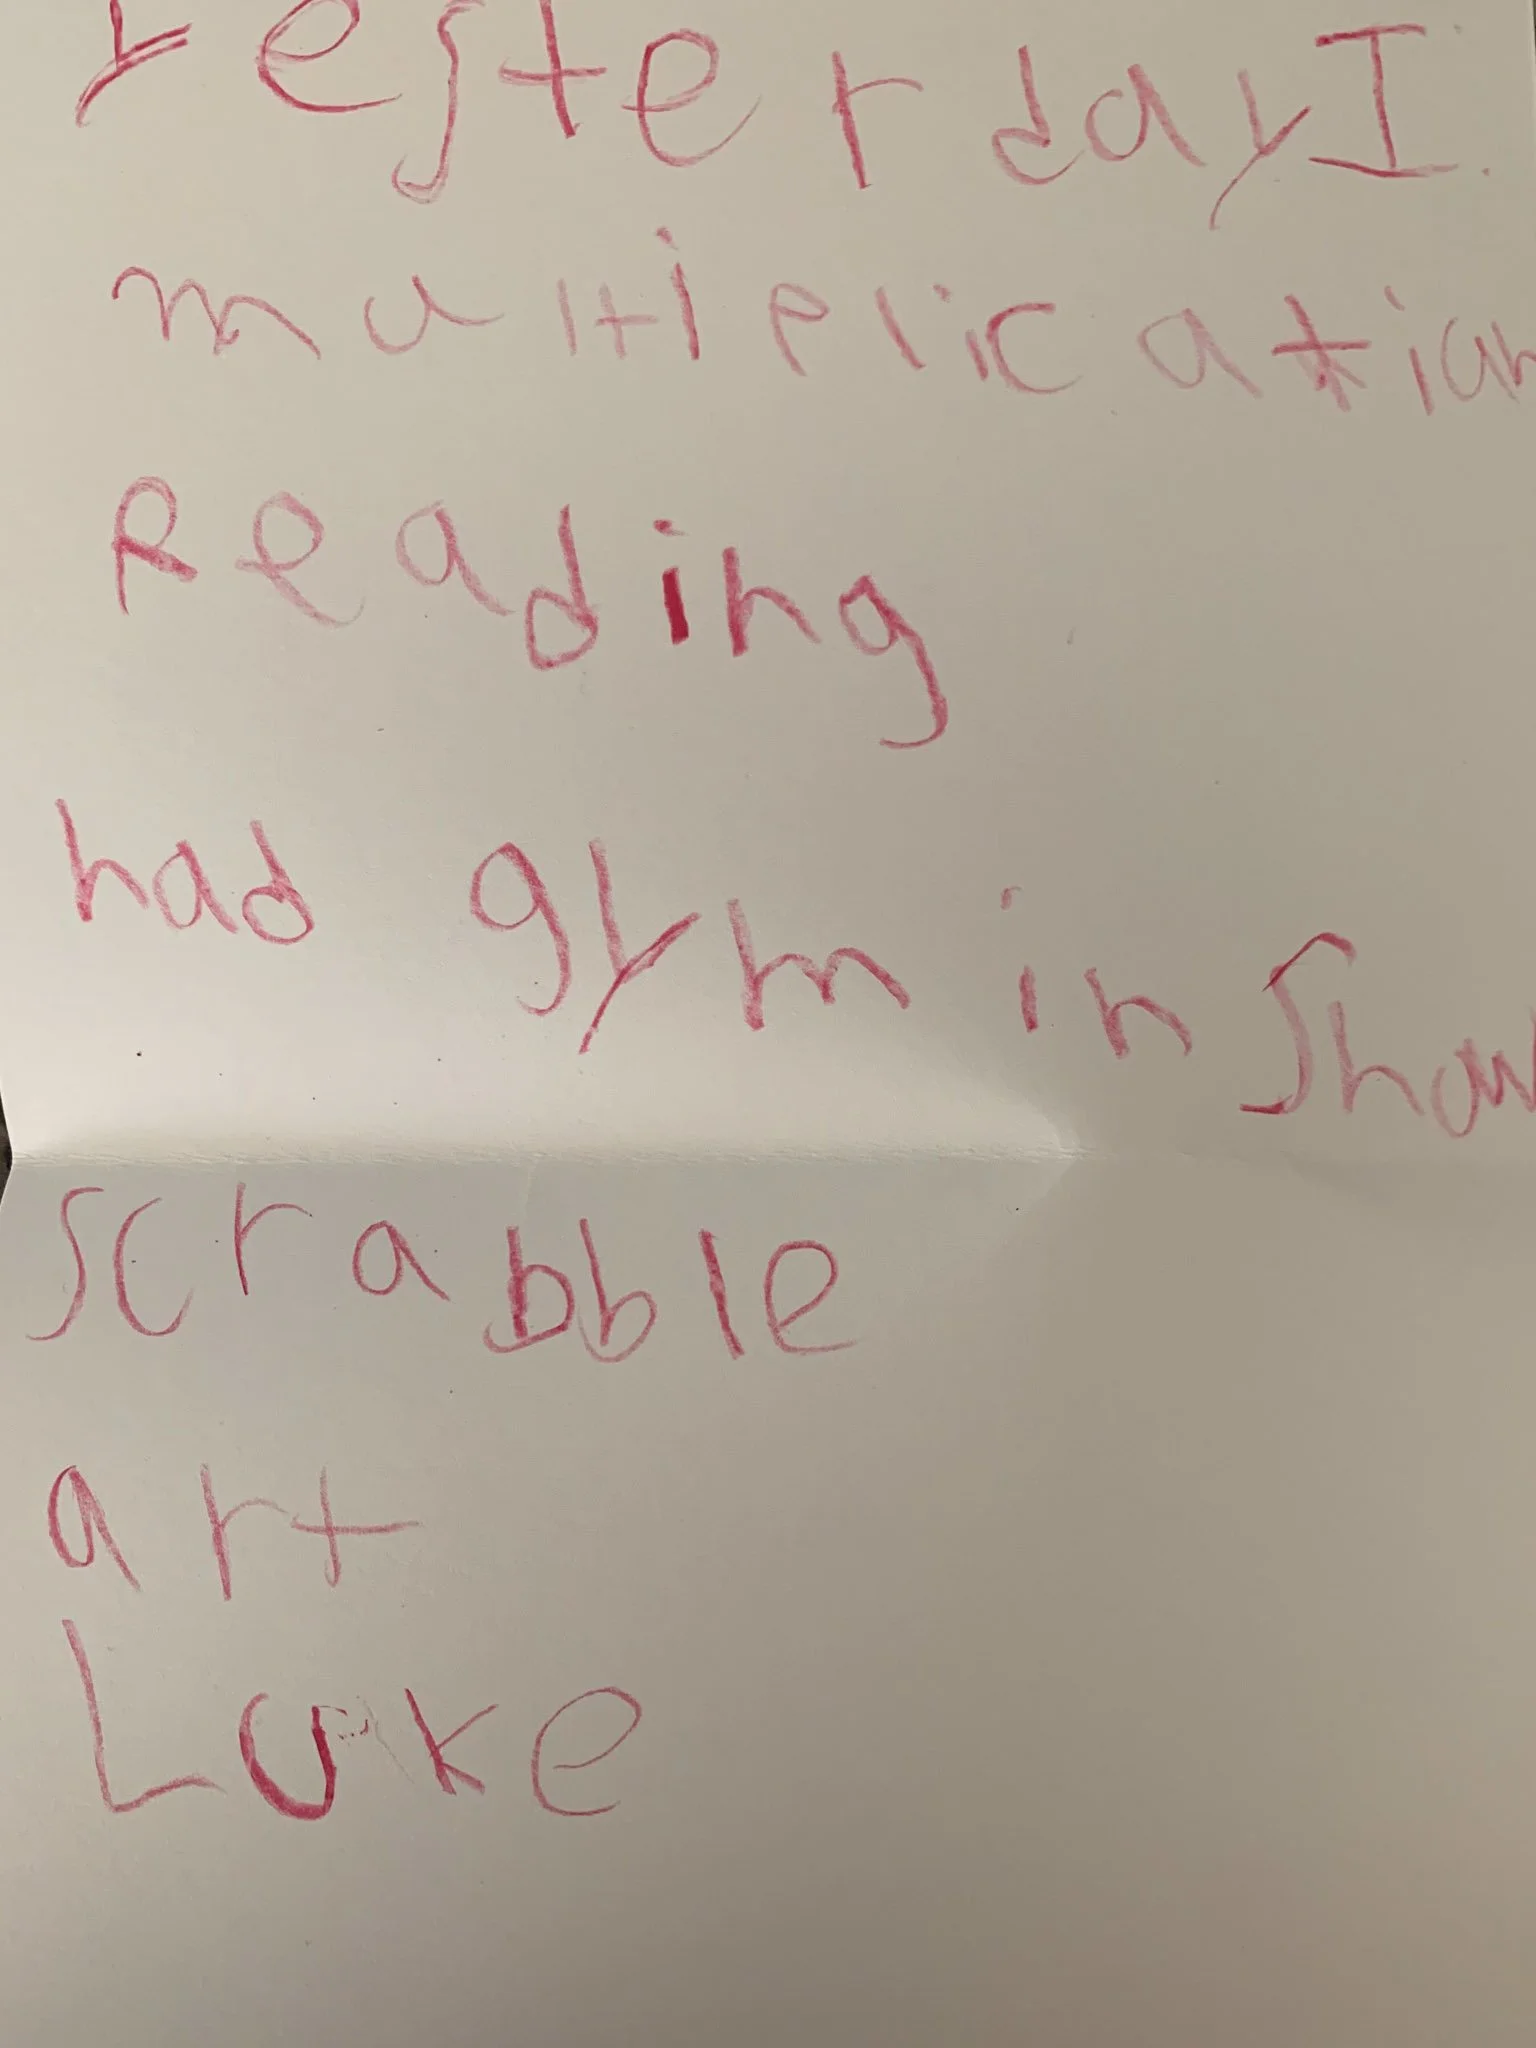 yesterday I
multiplication
Reading
had gym in
scrabble
art
Luke